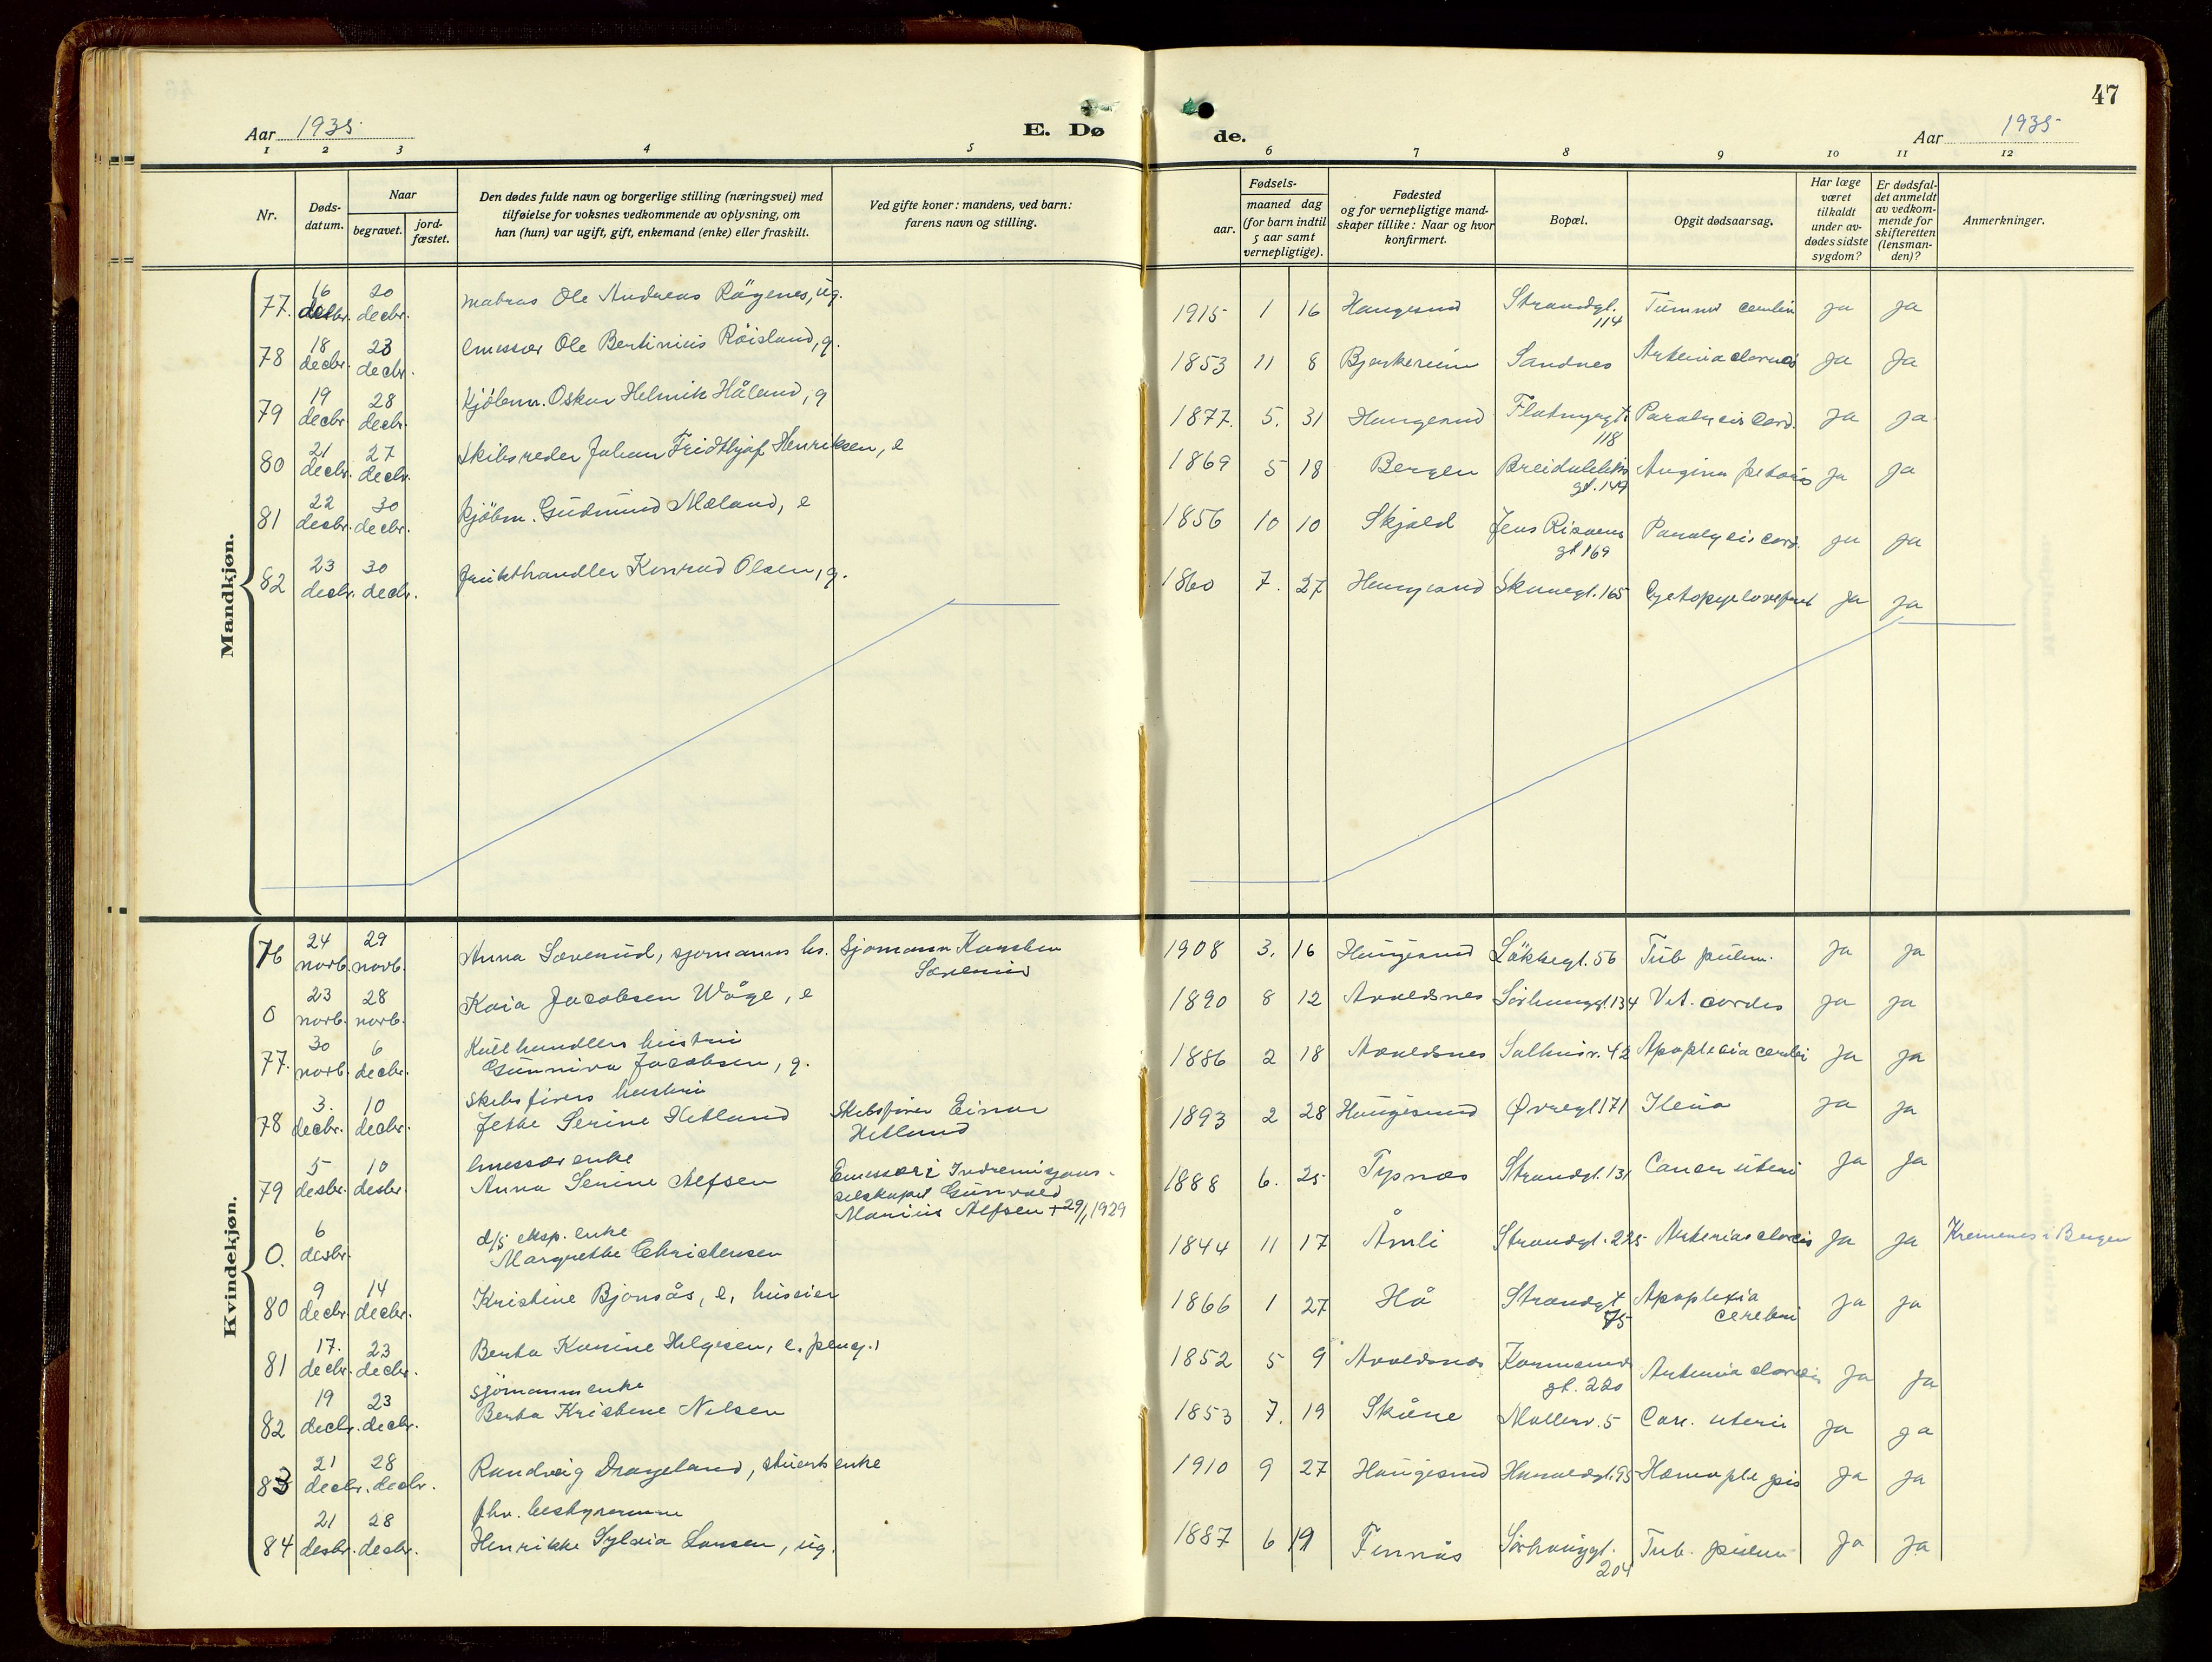 47
Aar 1935 E. Dø de. Aar 1935
1 2 3 4 5 6 7 8 9 10 11 12
Nr.
Døds-
datum.
Naar
begravet.
jord-
fæstet.
Den dødes fulde navn og borgerlige stilling (næringsvei) med
tilføielse for voksnes vedkommende av oplysning, om
han (hun) var ugift, gift, enkemand (enke) eller fraskilt.
Ved gifte koner: mandens, ved barn:
farens navn og stilling.
Fødsels-
aar.
maaned dag
(for barn indtil
5 aar samt
vernepligtige).
Fødested
og for vernepligtige mand-
skaper tillike: Naar og hvor
konfirmert.
Bopæl.
Opgit dødsaarsag.
Har læge
været
tilkaldt
under av-
dødes sidste
sygdom?
Er dødsfal-
det anmeldt
av vedkom-
mende for
skifteretten
(lensman-
den)?
Anmerkninger.
Mandkjøn.
77. 16 decbr. 20 decbr. matros Ole Andreas Rågenes, ug. 1915 1 16 Haugesund Strandgt. 114 Tumor cerebri Ja Ja
78 18 decbr. 23 decbr. Emissær Ole Bertinius Röisland, g. 1853 11 8 Bjerkreim Sandnes Ja Ja
79 19 decbr. 28 decbr. Kjöbm. Oskar Helmik Håland, g 1877. 5. 31 Haugesund Flotmyrgt. 118 Paralysis cord. Ja Ja
80 21 decbr. 27 decbr. Skibsreder Johan Fridthjof Henriksen, e 1869 5 18 Bergen gt. 149 Angina Ja Ja
81 22 decbr. 30 decbr. Kjöbm. Gudmund Mæland, e 1856 10 10 Skjold Jens Risøens gt 169 Paralysis cord. Ja Ja
82 23 decbr. 30 decbr. Frukthandler Konrad Olsen, g. 1860 7. 27 Haugesund Skaregt. 165 Ja Ja
Kvindekjøn.
76 24 novb. 29 novb. Anna Sævereid, sjømanns hs. Sjømann Karsten Sævereid 1908 3. 16 Haugesund Løkkegt. 56 Tub pulm. Ja Ja
0 23 novb. 28 novb. Kaia Jacobsen Våge, e 1890 8 12 Avaldsnes Sörhauggt. 134 Vit. cordis Ja Ja
77. 30 novb. 6 decbr. Kullhandlers hustru
Gunniva Jacobsen, g. 1886 2 18 Avaldsnes Salhusv. 42 Apoplexia cerebri Ja Ja
78 3. decbr. 10 decbr. Skibsförers hustru
Jette Serine Hetland Skibsförer Einar Hetland 1893 2 28 Haugesund Øvregt 171 Ileus Ja Ja
79 5 desbr. 10 desbr. Emissær enke
Anna Serine Alfsen Emissær i Indremisjons-
selskapet Gunvald
Marius Alfsen + 29/1 1929 1888 6. 25 Tysnæs Strandgt. 131 Cancer uteri Ja Ja
0. 6 desbr. d/s eksp. enke
Margrethe Christensen 1844 11 17 Åmli Strandgt. 225 Ja Ja Kremeres i Bergen
80 9 decbr. 14 decbr. Kristine Bjorsås, e, huseier 1866 1 27 Hå Strandgt 75 Apoplexia cerebri Ja Ja
81 17. decbr. 23 decbr. Berta Karine Helgesen, e, 1852 5 9 Avaldsnes Karmsunds gt. 220 Ja Ja
82 19 decbr. 23 decbr. Sjömanns enke
Berta Kristine Nilsen 1853 7. 19 Skåne Møllerv. 5 Carc. uteri Ja Ja
83 21 decbr. 28 decbr. Randveig Drageland, stuerts enke 1910 9 27 Haugesund Haraldsgt. 95 Ja Ja
84 21 desbr. 28 desbr. fhv. bestyrerinne
Henrikke Sylvia Larsen, ug. 1887 6 19 Finnås Sørhauggt. 204 Tub. pulm Ja Ja